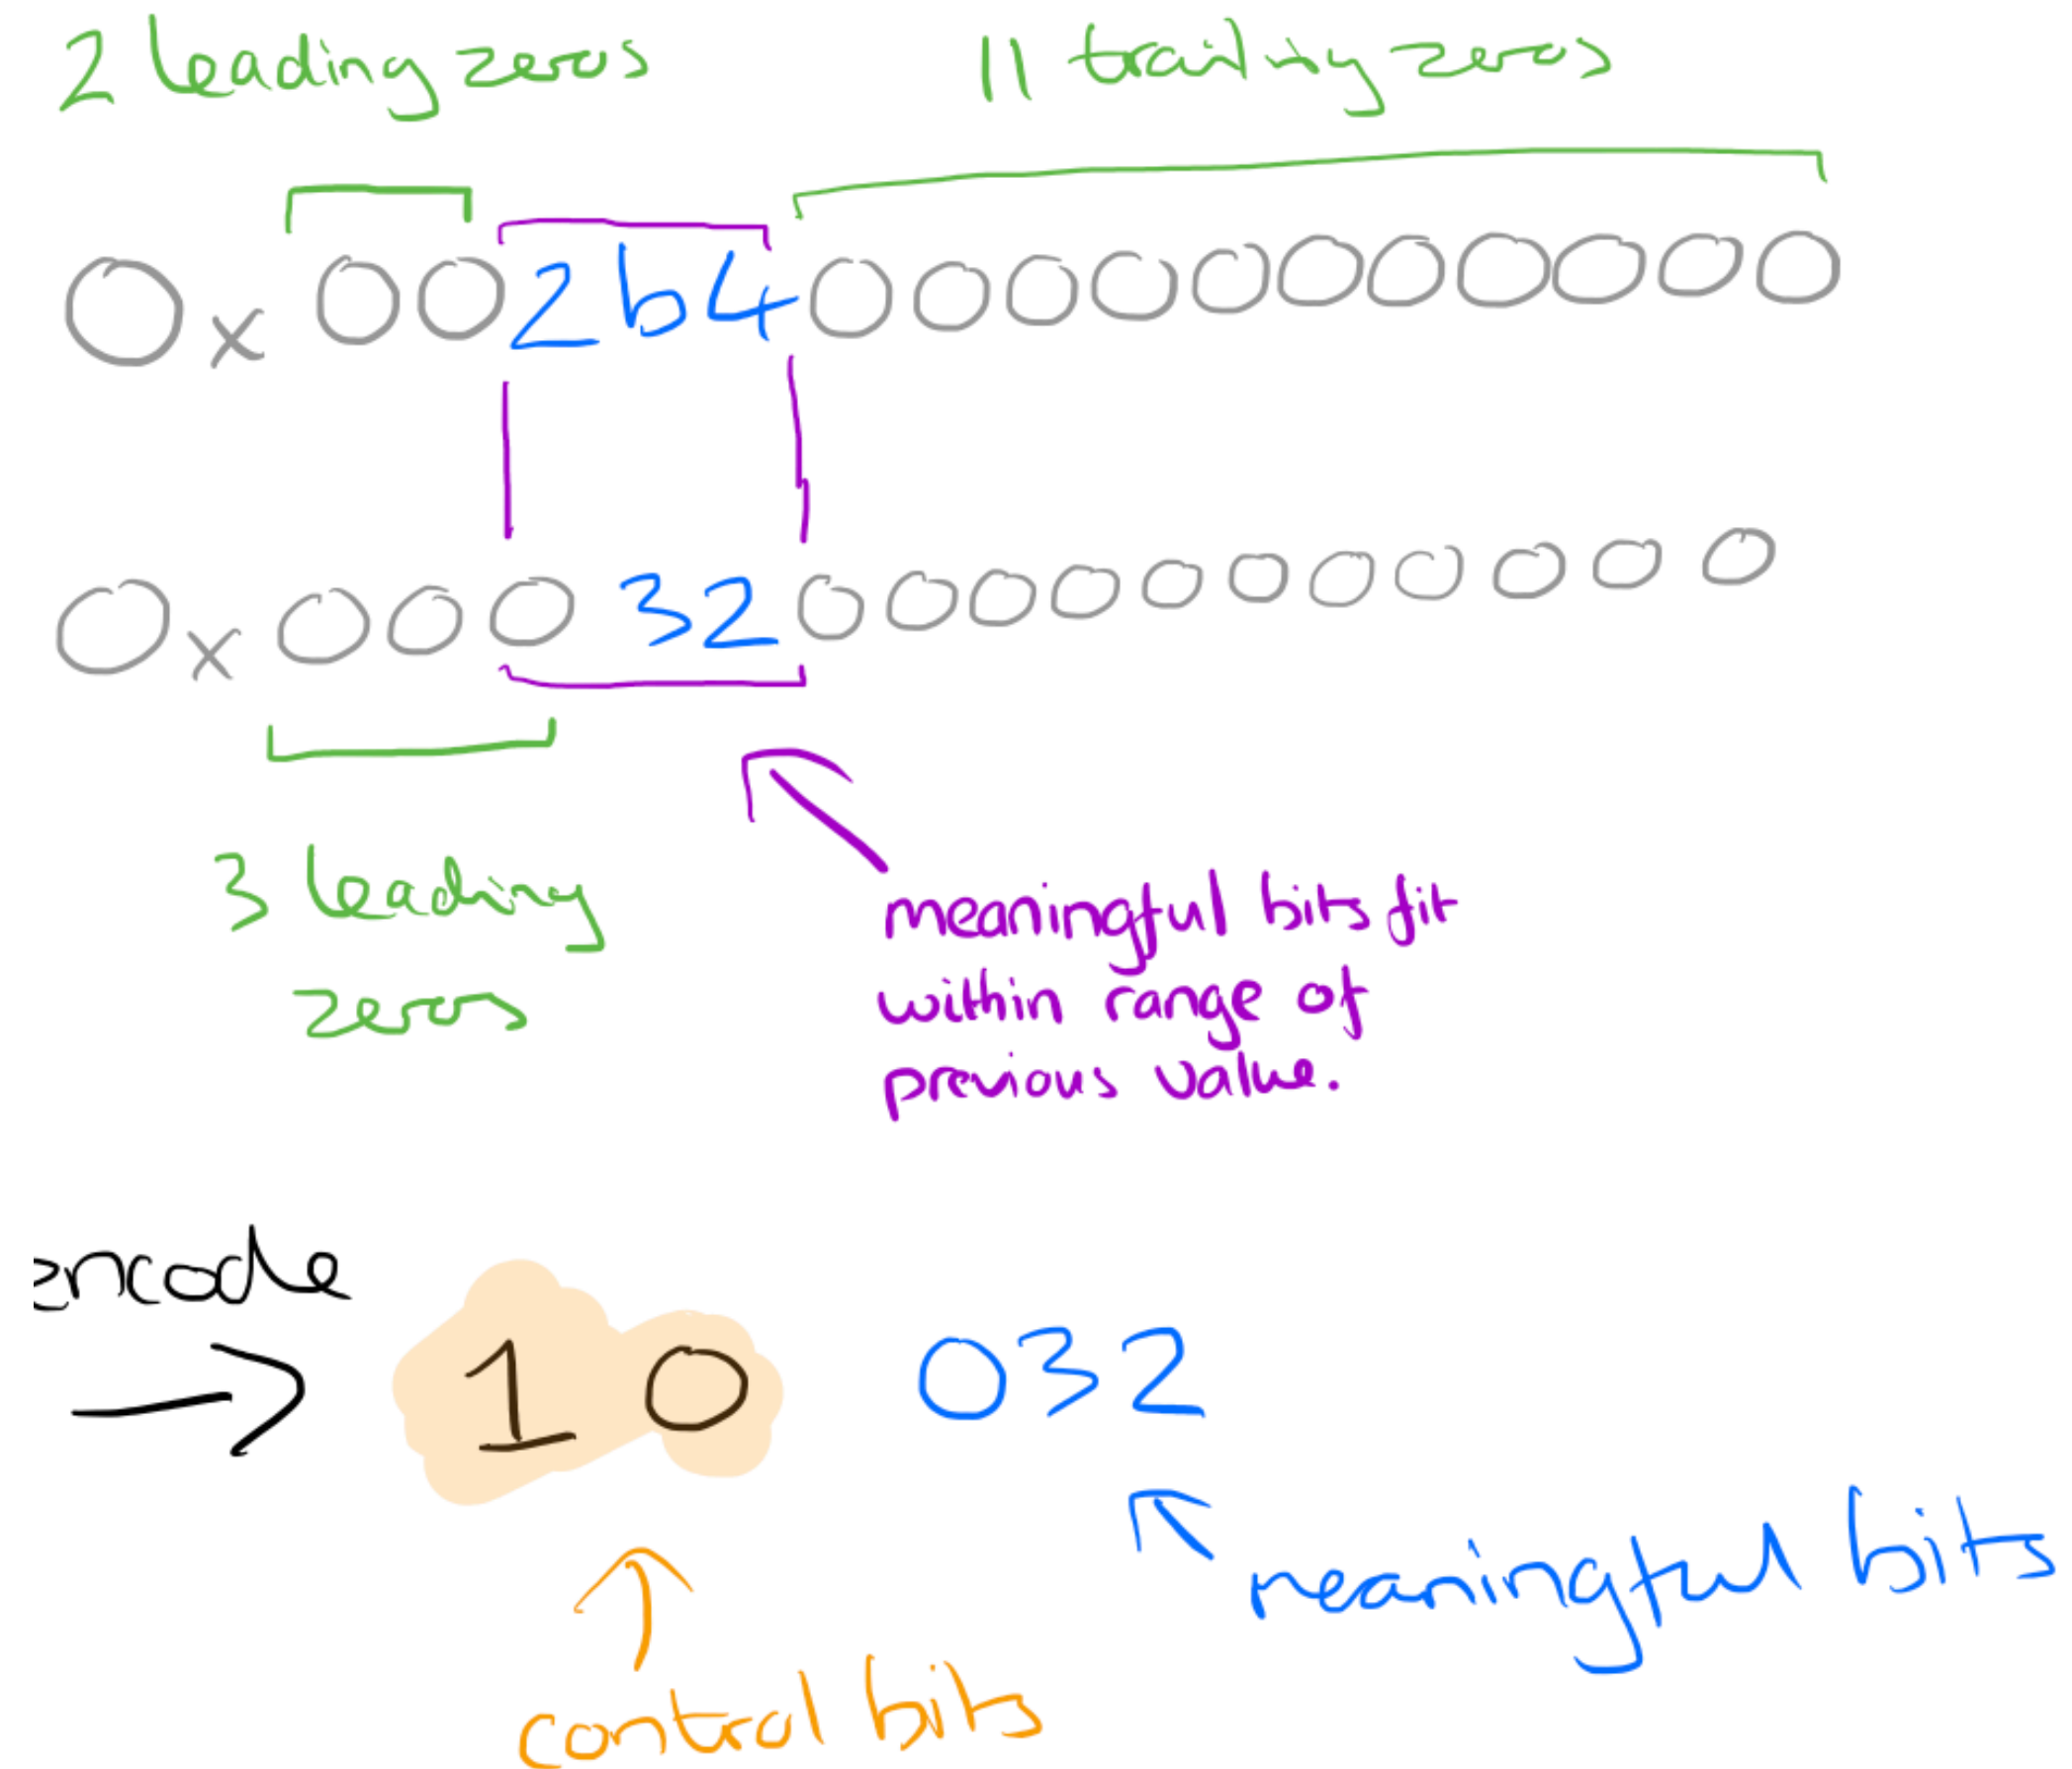 2 leading zeros 11 trailing zeros
0x002b400000000000
0x0003200000000000
3 leading
zeros
meaningful bits fit
within range of
previous value.
encode
10 032
meaningful bits
control bits